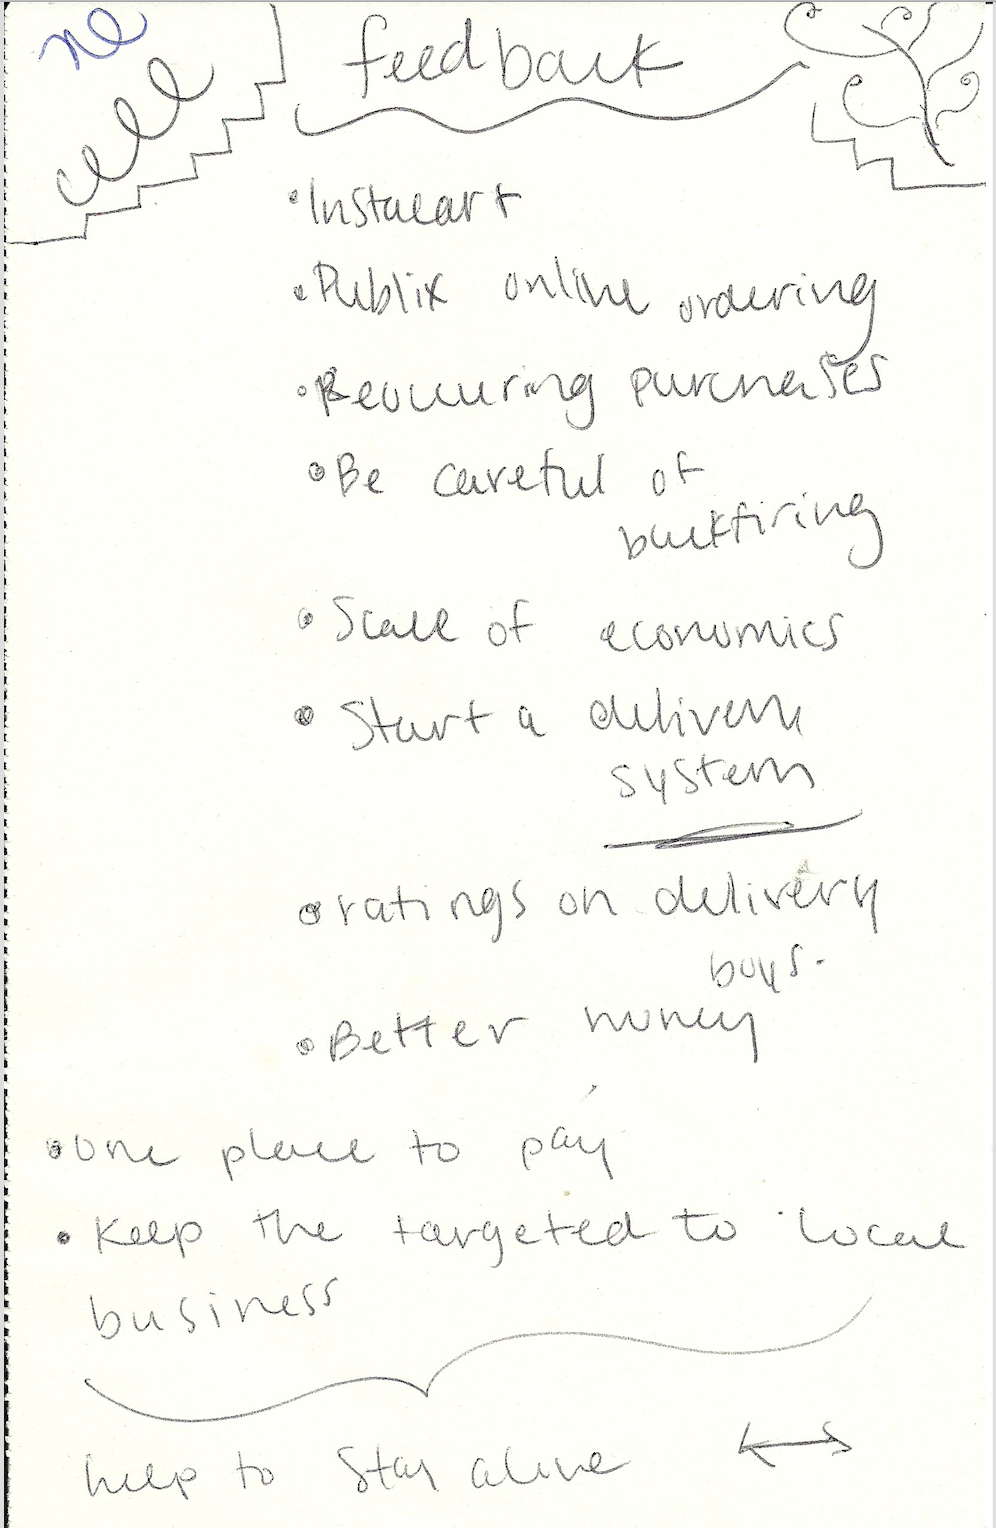 feedback
• Instacart
• Publix online ordering
• Reoccuring purchases
• Be careful of
backfiring
• Scale of economics
• Start a delivery
system
• ratings on delivery
boys.
• Better money
• one place to pay
• Keep the targeted to local
business
help to stay alive